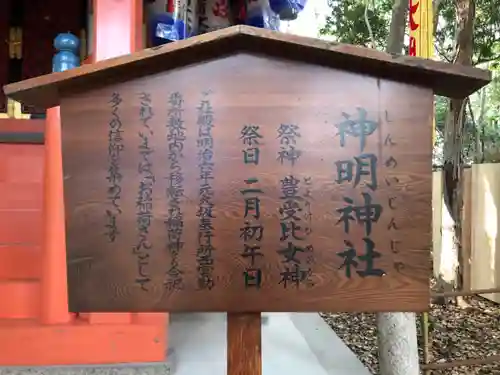 神明神社
しんめいじんじゃ
祭神 豊受比女神
とようけひめのかみ
祭日 二月初午日
社は明治
敷地内から移転され稲荷神を合祀
されていまでは「お稲荷さん」として
多くの信仰を集めています